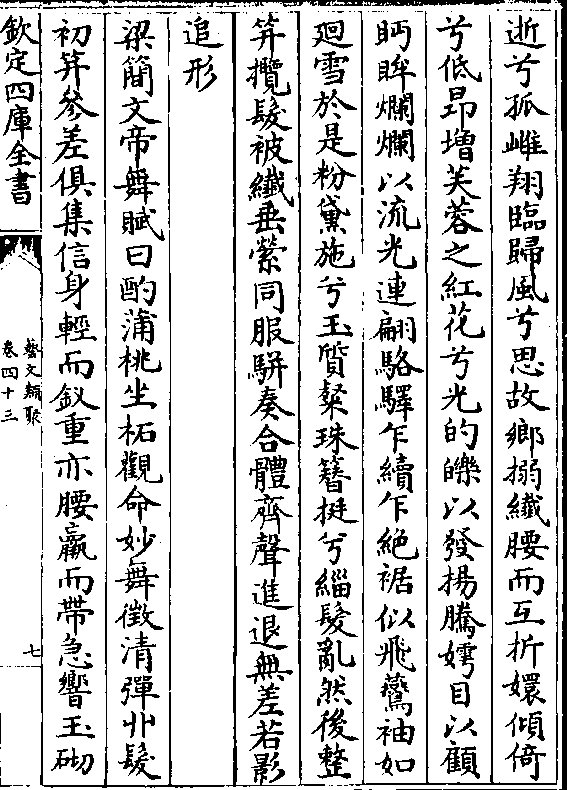 逝兮孤雌翔臨歸風兮思故鄉搦纖腰而互折嬛傾倚
兮低昂增芙蓉之紅花兮光的皪以發揚騰嫮目以顧
眄眸爛爛以流光連翩駱驛乍續乍絶裾似飛鸞袖如
廻雪於是粉黛施兮玉質粲珠簪挺兮緇髮亂然後整
笄攬髮被纖垂縈同服駢奏合體齊聲進退無差若影
追形
梁簡文帝舞賦曰酌蒲桃坐柘觀命妙舞徵清彈丱髮
初笄參差俱集信身輕而釵重亦腰羸而帶急響玉砌
欽定四庫全書
藝文類聚
卷四十三
七